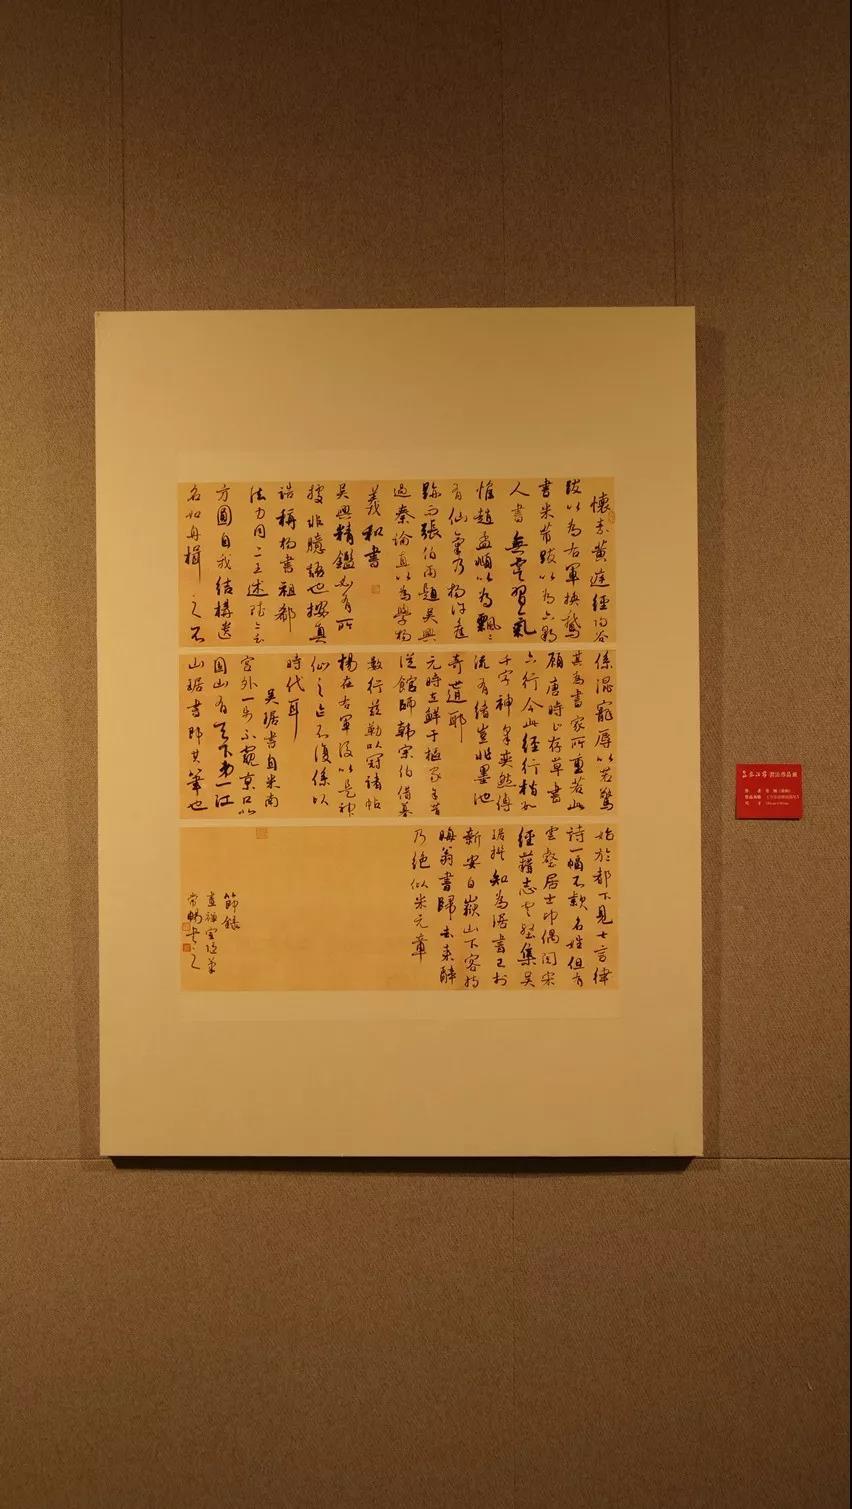 懷素黃庭經陶谷
跋以為右軍換鵞
書米芾跋以為六朝
人書無虞習氣
惟趙孟頫以為飄〻
有仙氣乃楊許舊
跡而張伯雨題吳興
過秦論直以為學楊
羲和書
吳興精鑑必有所
據非臆語也按真
誥稱楊書祖郗
法力同二王述
方圓自我結構遺
名如舟楫之不
係混寵辱以若驚
其為書家所重若此
顧唐時止存草書
六行今此經行楷數
千字神采奕然傳
流有緒豈非墨池
奇遘耶
元時在鮮于樞家余昔
從館師韓宗伯借摹
數行茲勒以冠諸帖
楊在右軍後以是神
仙之迹不復係以
時代耳
吳琚書自米南
宮外一步不窺京口北
固山有天下第一江
山琚書即其筆也
始於都下見七言律
詩一幅不款名姓但有
雲壑居士印偶閱宋
經籍志雲壑集吳
琚撰知為琚書已於
新安白嶽山下客持
晦翁書歸去來辭
乃絕似米元章
節錄
畫禪室隨筆
常暢書之
書法作品展